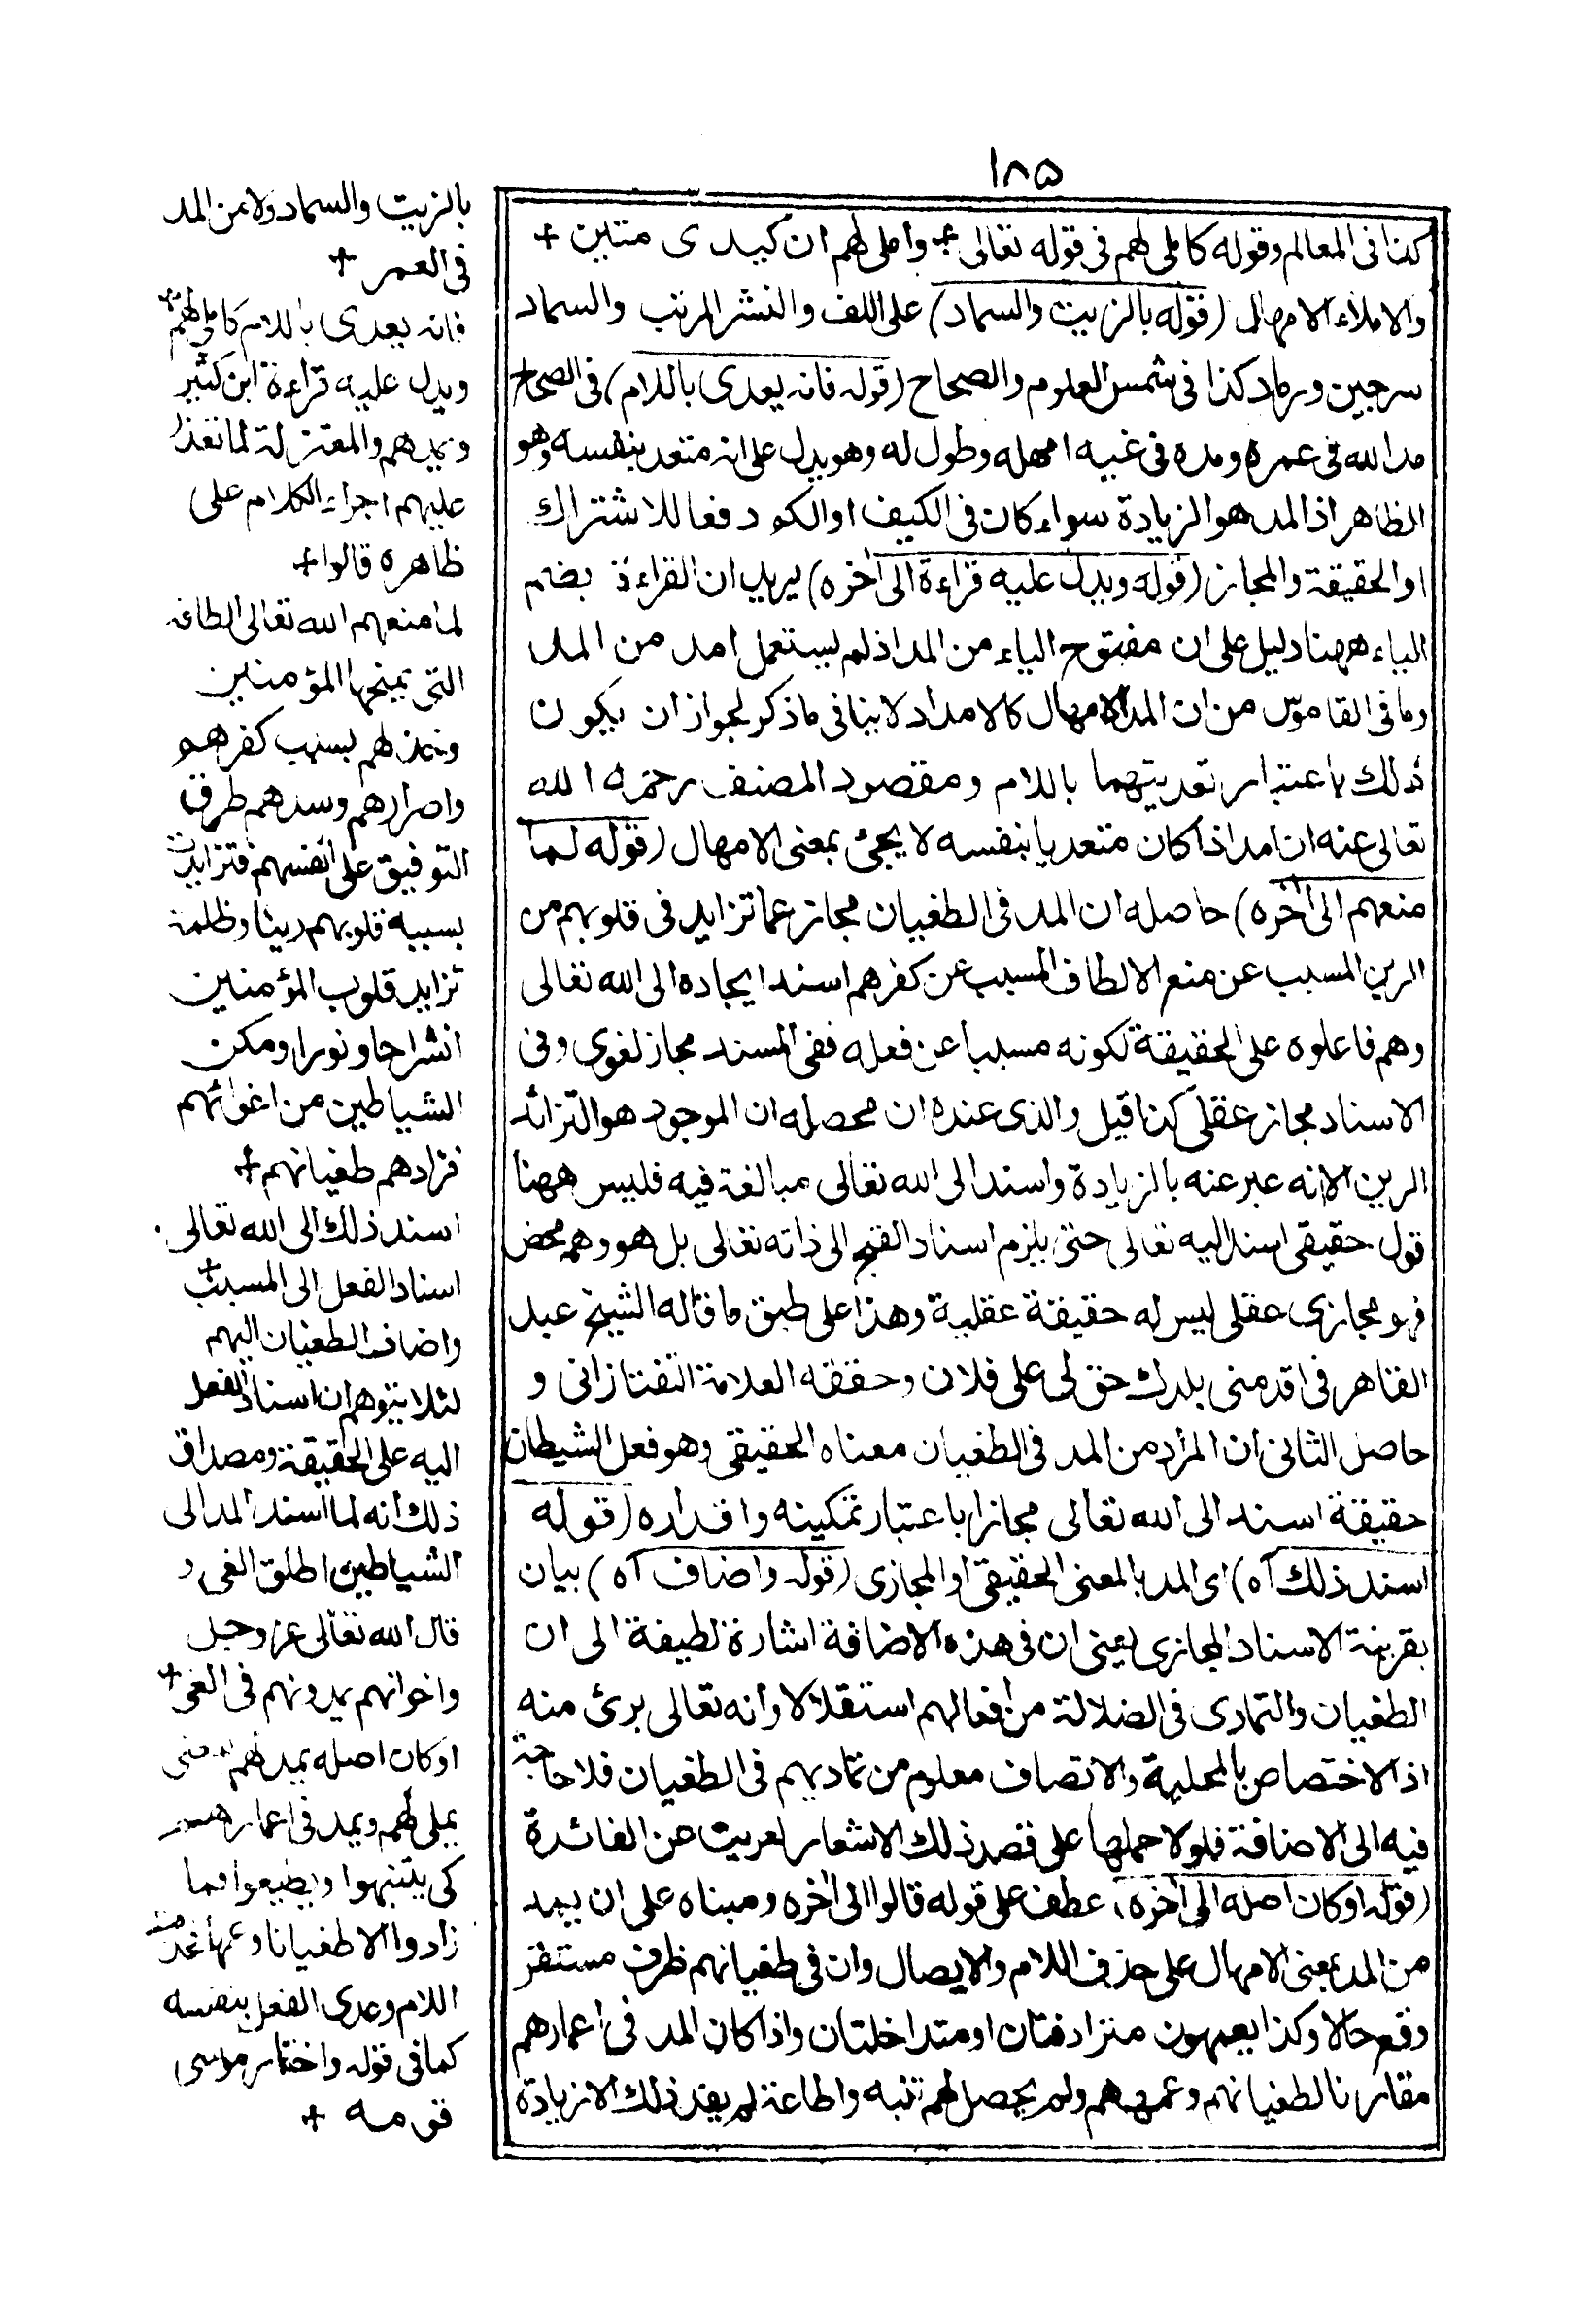 ١٨٥
كذا فى المعالم وقوله كاملى لهم فى قوله تعالى + واملى لهم ان كيدى متين +
والاملاء الامهال (قوله بالزيت والسماد) على اللف والنشر المرتب والسماد
سرجين ورماد كذا فى شمس العلوم والصحاح (قوله فانه يعدى باللام) فى الصحاح
مد الله فى عمره ومده فى غيه امهله وطول له وهو يدل على انه متعد بنفسه وهو
الظاهر اذ المد هو الزيادة سواء كان فى الكيف او الكم دفعا للاشتراك
او الحقيقة والمجاز (قوله ويدل عليه قراءة الى آخره) يريد ان القراءة بضم
الياء ههنا دليل على ان مفتوح الياء من المد اذ لم يستعمل امد من المد
وما فى القاموس من ان المد الامهال كالامداد لا ينافى ما ذكر لجواز ان يكون
ذلك باعتبار تعديتهما باللام ومقصود المصنف رحمه الله
تعالى عنه ان امد اذا كان متعديا بنفسه لا يجئ بمعنى الامهال (قوله لما
منعهم الى آخره) حاصله ان المد فى الطغيان مجاز عما تزايد فى قلوبهم من
الرين المسبب عن منع الالطاف المسبب عن كفرهم اسند ايجاده الى الله تعالى
وهم فاعلوه على الحقيقة لكونه مسببا عن فعله ففى المسند مجاز لغوى وفى
الاسناد مجاز عقلى كذا قيل والذى عنده ان محصله ان الموجود هو التزائد
الرين الا انه عبر عنه بالزيادة واسند الى الله تعالى مبالغة فيه فليس ههنا
قول حقيقى اسند اليه تعالى حتى يلزم اسناد القبح الى ذاته تعالى بل هو وهم محض
فهو مجازى عقلى ليس له حقيقة عقلية وهذا على طبق ما قاله الشيخ عبد
القاهر فى اقدمنى بلدك حق لى على فلان وحققه العلامة التفتازانى و
حاصل الثانى ان المراد من المد فى الطغيان معناه الحقيقى وهو فعل الشيطان
حقيقة اسند الى الله تعالى مجازا باعتبار تمكينه واقداره (قوله
اسند ذلك آه) اى المد بالمعنى الحقيقى او المجازى (قوله واضاف آه) بيان
بقرينة الاسناد المجازى يعنى ان فى هذه الاضافة اشارة لطيفة الى ان
الطغيان والتمادى فى الضلالة من افعالهم استقلالا وانه تعالى برئ منه
اذ الاختصاص بالمحلية والاتصاف معلوم من تماديهم فى الطغيان فلا حاجة
فيه الى الاضافة فلولا حملها على قصد ذلك الاشعار لعريت عن الفائدة
(قوله اوكان اصله الى آخره) عطف على قوله قالوا الى آخره ومبناه على ان يمد
من المد بمعنى الامهال على حذف اللام والايصال وان فى طغيانهم ظرف مستقر
وقع حالا وكذا يعمهون مترادفتان او متداخلتان واذا كان المد فى اعمارهم
مقارنا لطغيانهم وعمههم ولم يحصل لهم تنبه واطاعة لم يفد ذلك الا زيادة
بالزيت والسماد ولا من المد
فى العمر +
فانه يعدى باللام كاملى لهم +
ويدل عليه قراءة ابن كثير
ويمدهم والمعتزلة لما تعذر
عليهم اجراء الكلام على
ظاهره قالوا +
لما منعهم الله تعالى الطافه
التى يمنحها المؤمنين
وخذلهم بسبب كفرهم
واصرارهم وسدهم طرق
التوفيق على انفسهم فتزايدت
بسببه قلوبهم رينا وظلمة
تزايد قلوب المؤمنين
انشراحا ونورا ومكن
الشياطين من اغوائهم
فزادهم طغيانهم +
اسند ذلك الى الله تعالى
اسناد الفعل الى المسبب +
واضاف الطغيان اليهم
لئلا يتوهم ان اسناد الفعل
اليه على الحقيقة ومصداق
ذلك انه لما اسند المد الى
الشياطين اطلق الغى و
قال الله تعالى عز وجل
واخوانهم يمدونهم فى الغى +
اوكان اصله يمد لهم بمعنى
يملى لهم ويمد فى اعمارهم
كى يتنبهوا ويطيعوا فما
زادوا الا طغيانا وعمها فحذفت
اللام وعدى الفعل بنفسه
كما فى قوله واختار موسى
قومه +